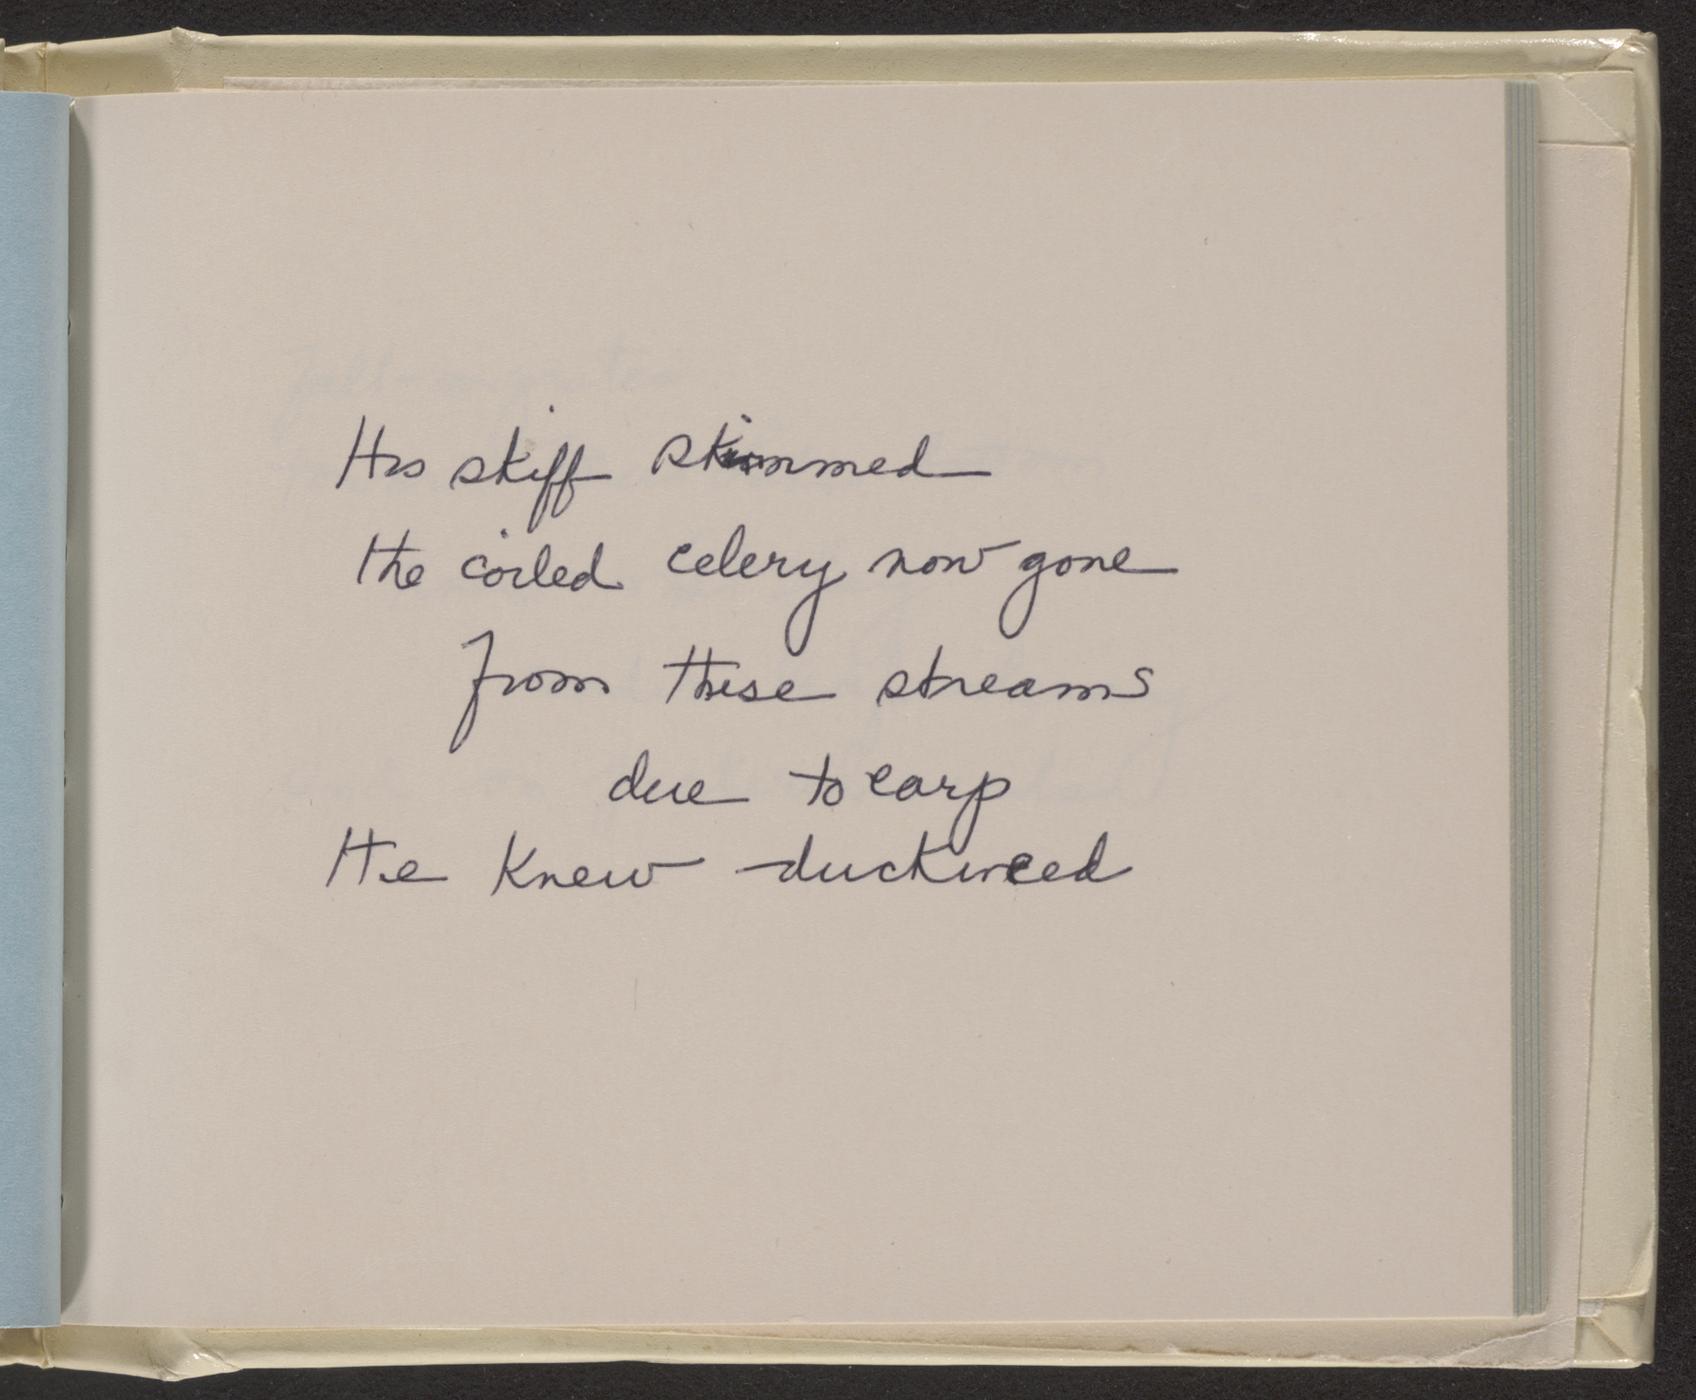 His skiff skimmed
the coiled celery now gone
from these streams
due to carp
He knew duckweed